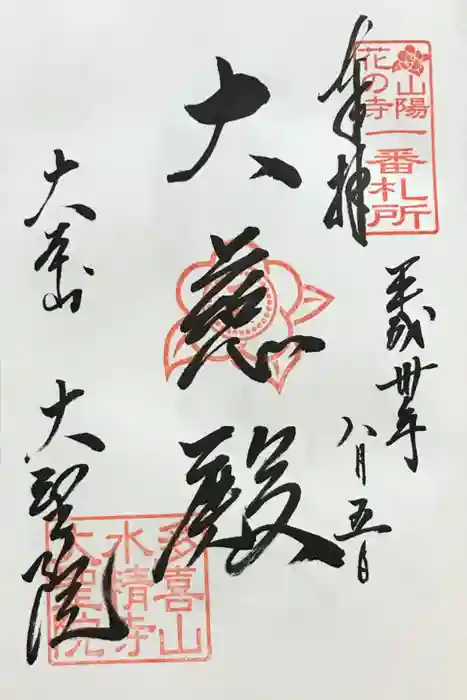 山陽
花の寺
一番札所
奉拝
平成卅年
八月五日
大慈殿
大本山
大聖院
多喜山
水精寺
大聖院